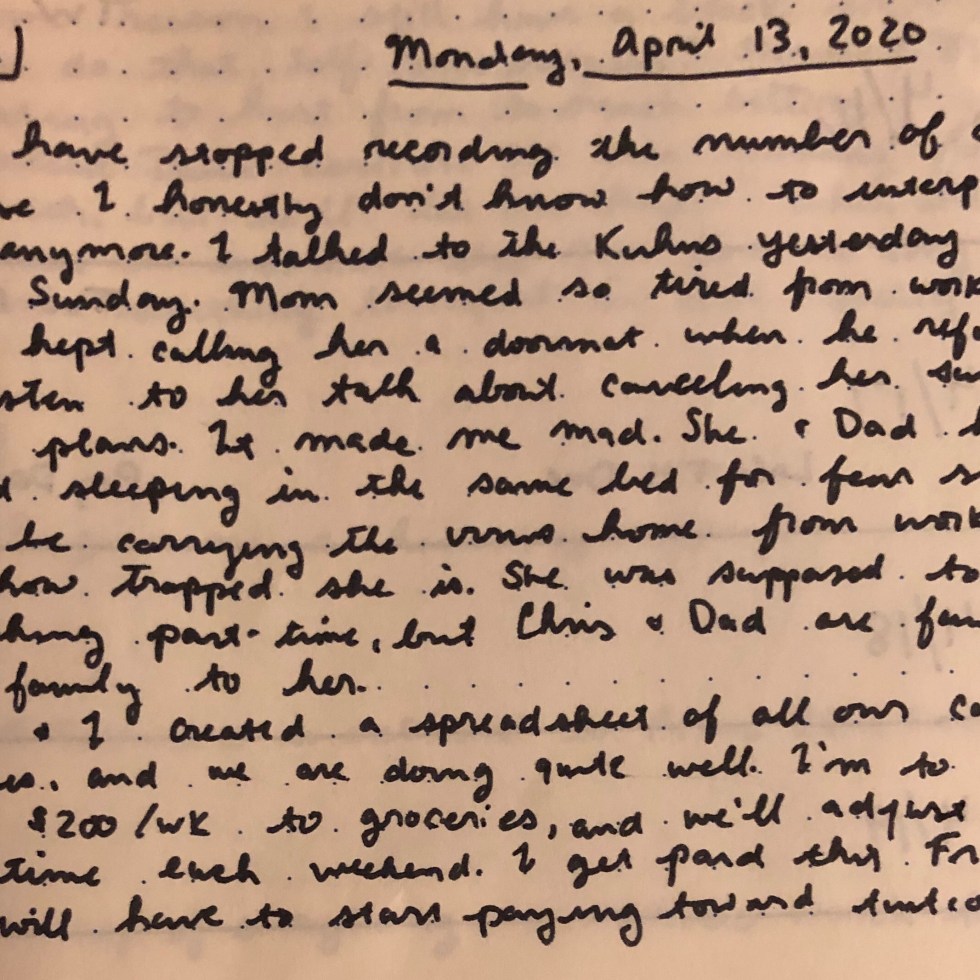 Monday, April 13, 2020
have stopped recording the number of
I honestly don't know how to interp
anymore. I talked to the Kuhns yesterday
Sunday. Mom seemed so tired from work
kept calling her a doormat when he ref
sten to her talk about canceling her su
plans. It made me mad. She & Dad
sleeping in the same bed for fear s
be carrying the virus home from work
how trapped she is. She was supposed to
ching part-time, but Chris & Dad are
family to her.
& I created a spreadsheet of all our
es, and we are doing quite well. I'm to
$200/wk to groceries, and we'll adjust
time each weekend. I get paid this Fr
will have to start paying toward